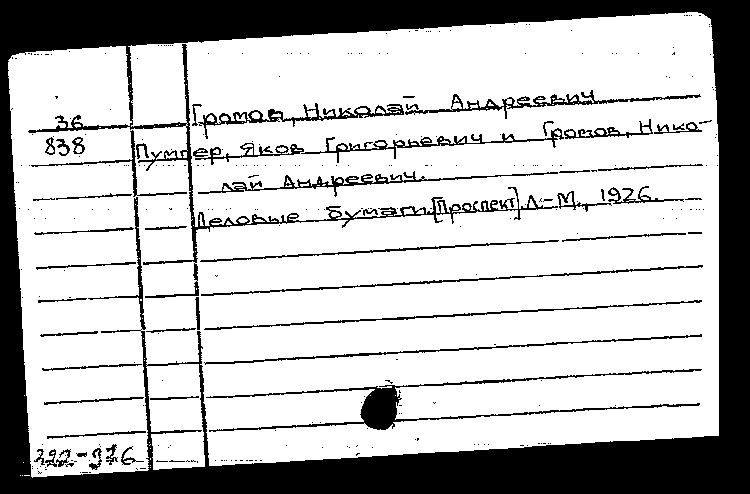 Громов, Николай Андреевич
36
838 Пумпер, Яков Григорьевич и Громов, Нико-
лай Андреевич.
Деловые бумаги.[Проспект].Л.-М., 1926.
322-976